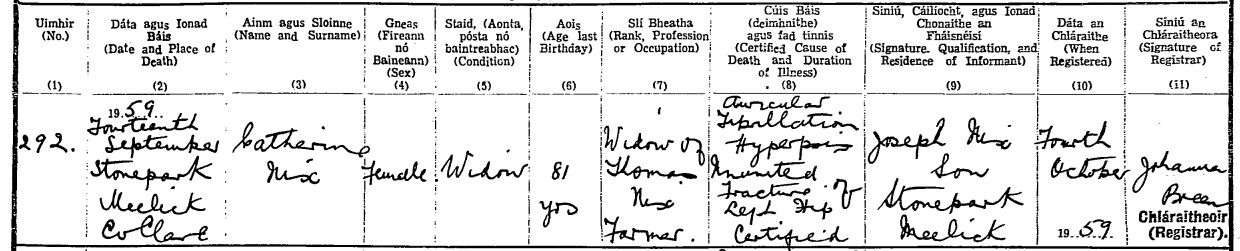 Uimhir
(No.)
(1)
Dáta agus Ionad
Báis
(Date and Place of
Death)
(2)
Ainm agus Sloinne
(Name and Surname)
(3)
Gneas
(Fireann
nó
Baineann)
(Sex)
(4)
Staid, (Aonta,
pósta nó
baintreabhac)
(Condition)
(5)
Aois
(Age last
Birthday)
(6)
Slí Bheatha
(Rank, Profession
or Occupation)
(7)
Cúis Báis
(deimhnithe)
agus fad tinnis
(Certified Cause of
Death and Duration
of Illness)
(8)
Siniú, Cáilíocht, agus Ionad
Chonaithe an
Fháisnéisí
(Signature. Qualification, and
Residence of Informant)
(9)
Dáta an
Chláraithe
(When
Registered)
(10)
Siniú an
Chláraitheora
(Signature of
Registrar)
(11)
292.
1959.
Fourteenth
September
Stonepark
Meelick
Co Clare
Catherine
Nix
Female
Widow
81
yrs
Widow of
Thomas
Nix
Farmer.
Auricular
Fibrillation
Ununited
Fracture of
Left Hip
Certified
Joseph Nix
Son
Stonepark
Meelick
Fourth
October
1959.
Johanna
Breen
Chláraitheoir
(Registrar).